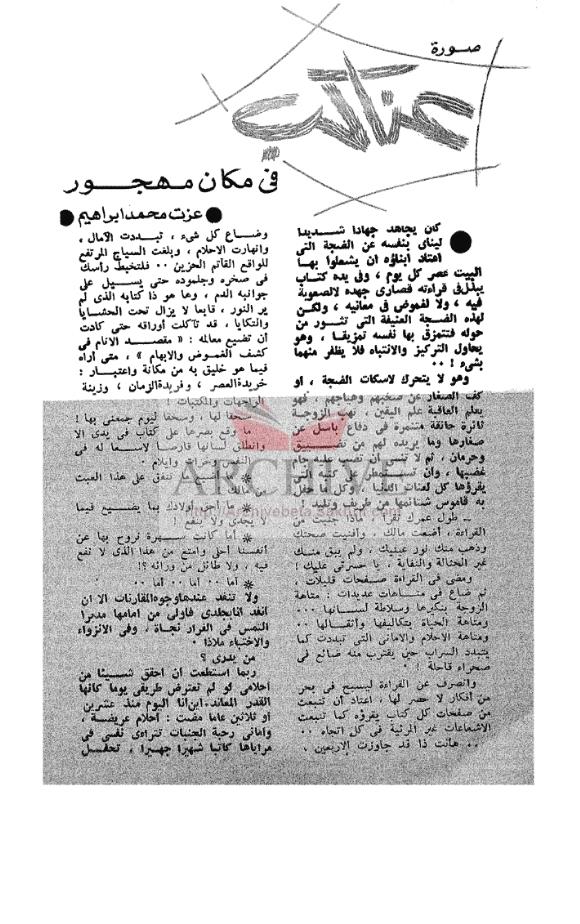 صورة
عناكب
في مكان مهجور
عزت محمد ابراهيم
كان يجاهد جهادا شديدا
لينأى بنفسه عن الضجة التى
اعتاد أبناؤه ان يشعلوا بها
البيت عصر كل يوم ، وفى يده كتاب
يبذل فى قراءته قصارى جهده لالصعوبة
فيه ، ولا لغموض فى معانيه ، ولكن
لهذه الضجة العنيفة التى تثور من
حوله فتتمزق بها نفسه تمزيقا ، وهو
يحاول التركيز والانتباه فلا يظفر منهما
بشىء ! ٠٠
وهو لا يتحرك لاسكات الضجة ، أو
كف الصغار عن صخبهم وهياجهم ، فهو
يعلم العاقبة علم اليقين ، تهب الزوجة
ثائرة حانقة مشمرة فى دفاع باسل عن
صغارها وما يريده لهم من تضييق
وحرمان ، ثم لا تنسى أن تصب عليه جام
غضبها ، وأن تستمطر على كتبه التى
يقرؤها كل لعنات الدنيا ، وكل ما حفل
به قاموس شتائمها من طريف وتليد
ـ طول عمرك تقرأ ، ماذا جنيت من
القراءة ، أضعت مالك ، وأفنيت صحتك
وذهب منك نور عينيك ، ولم يبق منك
غير الحثالة والنفاية ، يا حسرتى عليك !
ومضى فى القراءة صفحات قليلات ،
ثم ضاع فى متاهات عديدات : متاهة
الزوجة بنكيرها وسلاطة لسانها ٠٠٠
ومتاهة الحياة بتكاليفها وأثقالها ٠٠
ومتاهة الاحلام والامانى التى تبددت كما
يتبدد السراب حين يقترب منه ضائع فى
صحراء قاحلة !
وانصرف عن القراءة ليسبح فى بحر
من أفكار لا حصر لها ، اعتاد أن تنبعث
من صفحات كل كتاب يقرؤه كما تنبعث
الاشعاعات غير المرئية فى كل اتجاه ٠٠
٠٠ هانت ذا قد جاوزت الاربعين ،
وضاع كل شىء ، تبددت الآمال ،
وانهارت الاحلام ، وبلغت السياج المرتفع
للواقع القاتم الحزين ٠٠ فلتخبط رأسك
فى صخره وجلموده حتى يسيل على
جوانبه الدم ، وها هو ذا كتابه الذى لم
ير النور ، قابعا لا يزال تحت الحشايا
والتكايا ، قد تآكلت أوراقه حتى كادت
أن تضيع معالمه : « مقصد الانام فى
كشف الغموض والابهام » ، متى أراه
فيما هو خليق به من مكانة واعتبار :
خريدة العصر ، وفريدة الزمان ، وزينة
الواجهات والمكتبات !
سحقا لها ، وسحقا ليوم جمعنى بها !
ما وقع بصرها على كتاب فى يدى الا
وانطلق لسانها قارصا لاسعا له فى
النفس حزات وايلام
كم تنفق على هذا العبث
من مالك !
ما أحق أولادك بما يضيع فيما
لا يجدى ولا ينفع !
أما كانت سهرة نروح بها عن
أنفسنا أحلى وأمتع من هذا الذى لا نفع
فيه ، ولا طائل من ورائه ؟!
أما ٠٠ أما ٠٠ أما ٠٠
ولا تنفد عندها وجوه المقارنات الا ان
أنفد أنا بجلدى فأولى من أمامها مدبرا
ألتمس فى الفرار نجاة ، وفى الانزواء
والاختباء ملاذا ٠
من يدرى ؟
ربما استطعت أن أحقق شيئا من
أحلامى لو لم تعترض طريقى يوما كأنها
القدر المعاند٠ أين أنا اليوم منذ عشرين
أو ثلاثين عاما مضت : أحلام عريضة ،
وأمانى رحبة الجنبات تتراءى نفسى فى
مراياها كاتبا شهيرا جهيرا ، تحتفل
ARCHIVE